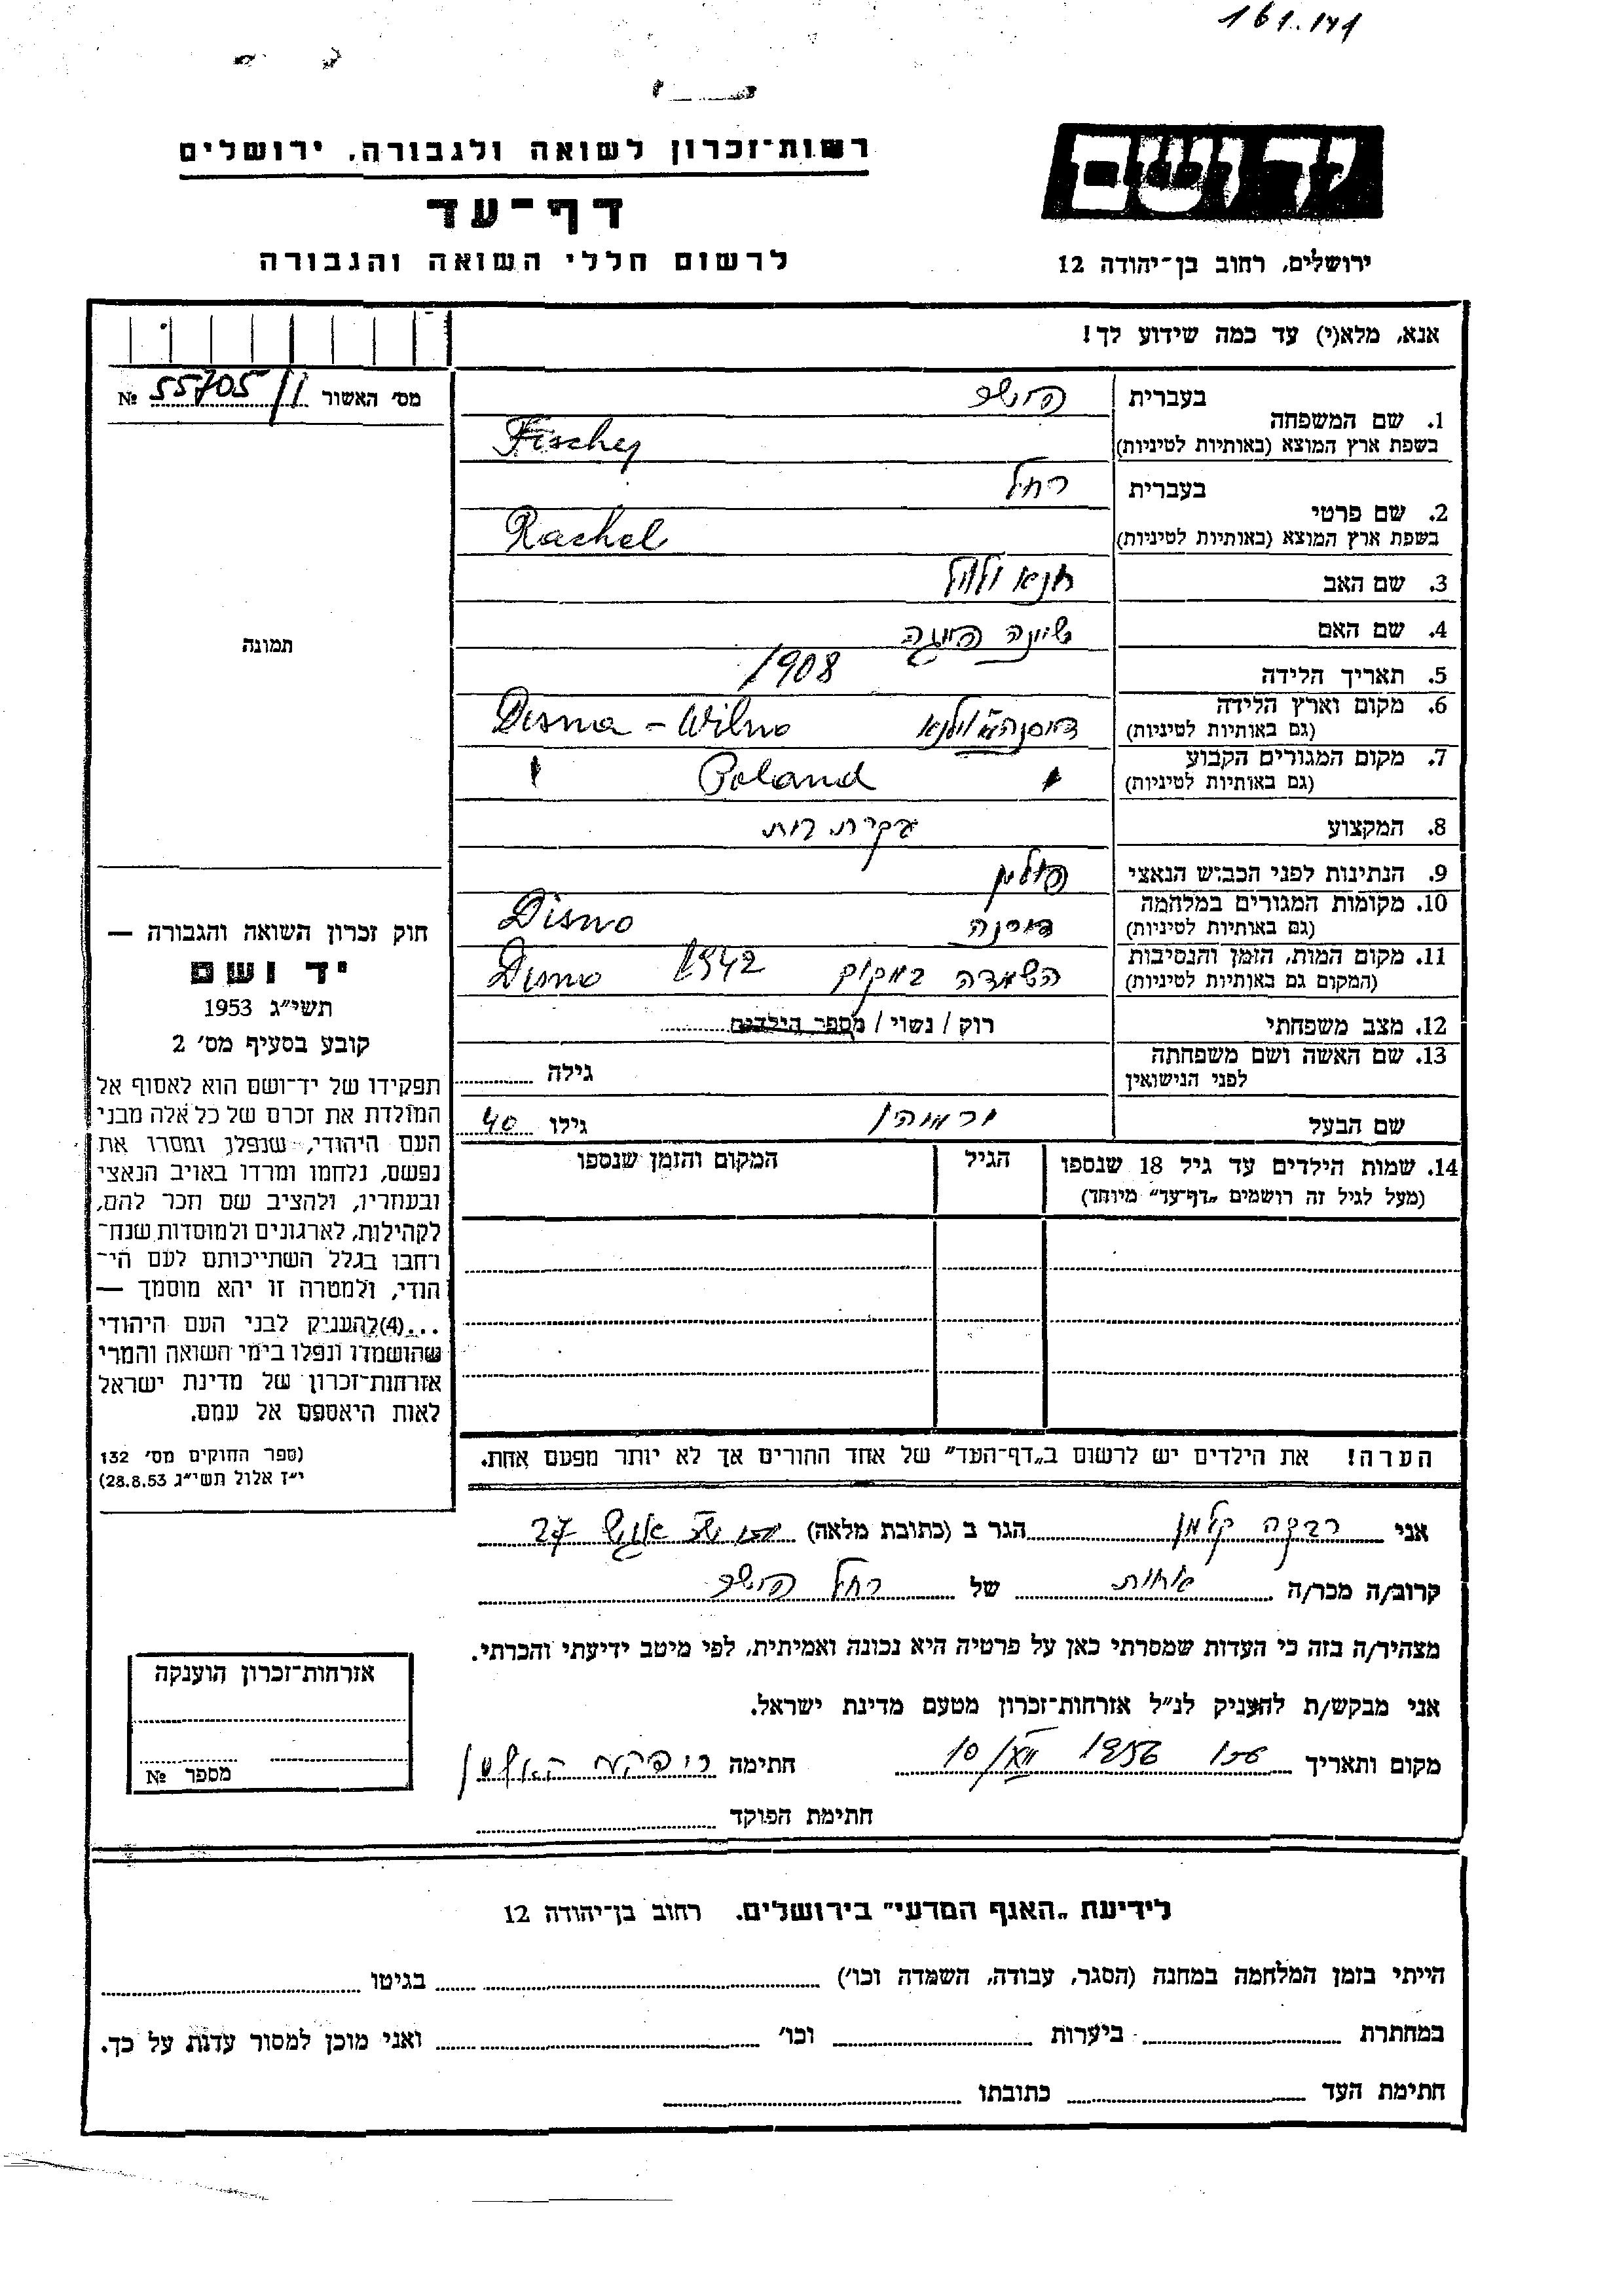 161.141
רשות־זכרון לשואה ולגבורה, ירושלים
דף־עד
לרשום חללי השואה והגבורה
יד ושם
ירושלים, רחוב בן־יהודה 12
אנא, מלא(י) עד כמה שידוע לך!
מס׳ האשור 55705/1 №
תמונה
1. שם המשפחה
בעברית פישר
בשפת ארץ המוצא (באותיות לטיניות) Fischer
2. שם פרטי
בעברית רחל
בשפת ארץ המוצא (באותיות לטיניות) Rachel
3. שם האב חנא
4. שם האם שיינה פייגה
5. תאריך הלידה 1908
6. מקום וארץ הלידה Disna - Wilno
(גם באותיות לטיניות)
7. מקום המגורים הקבוע Poland
(גם באותיות לטיניות)
8. המקצוע עקרת בית
9. הנתינות לפני הכביש הנאצי פולין
10. מקומות המגורים במלחמה דיסנה Disno
(גם באותיות לטיניות)
11. מקום המות, הזמן והנסיבות השמדה במקום 1942 Disno
(המקום גם באותיות לטיניות)
12. מצב משפחתי רוק / נשוי / מספר הילדים
13. שם האשה ושם משפחתה גילה
לפני הנישואין
שם הבעל גילו 40
14. שמות הילדים עד גיל 18 שנספו הגיל המקום והזמן שנספו
(מעל לגיל זה רושמים „דף־עד״ מיוחד)
הערה! את הילדים יש לרשום ב„דף־העד״ של אחד ההורים אך לא יותר מפעם אחת.
חוק זכרון השואה והגבורה —
יד ושם
תשי״ג 1953
קובע בסעיף מס׳ 2
תפקידו של יד־ושם הוא לאסוף אל
המולדת את זכרם של כל אלה מבני
העם היהודי, שנפלו ומסרו את
נפשם, נלחמו ומרדו באויב הנאצי
ובעוזריו, ולהציב שם וזכר להם,
לקהילות, לארגונים ולמוסדות שנח־
רבו בגלל השתייכותם לעם הי־
הודי, ולמטרה זו יהא מוסמך —
...(4) להעניק לבני העם היהודי
שהושמדו ונפלו בימי השואה והמרי
אזרחות־זכרון של מדינת ישראל
לאות היאספם אל עמם.
(ספר החוקים מס׳ 132
י״ז אלול תשי״ג 28.8.53)
אני רבקה קלמן הגר ב (כתובת מלאה) 27
קרוב/ה מכר/ה אחות של רחל פישר
מצהיר/ה בזה כי העדות שמסרתי כאן על פרטיה היא נכונה ואמיתית, לפי מיטב ידיעתי והכרתי.
אני מבקש/ת להעניק לנ״ל אזרחות־זכרון מטעם מדינת ישראל.
מקום ותאריך 1956 10 חתימה
חתימת הפוקד
אזרחות־זכרון הוענקה
מספר №
לידיעת „האגף המדעי״ בירושלים. רחוב בן־יהודה 12
הייתי בזמן המלחמה במחנה (הסגר, עבודה, השמדה וכו׳) בגיטו
במחתרת ביערות וכו׳ ואני מוכן למסור עדות על כך.
חתימת העד כתובתו